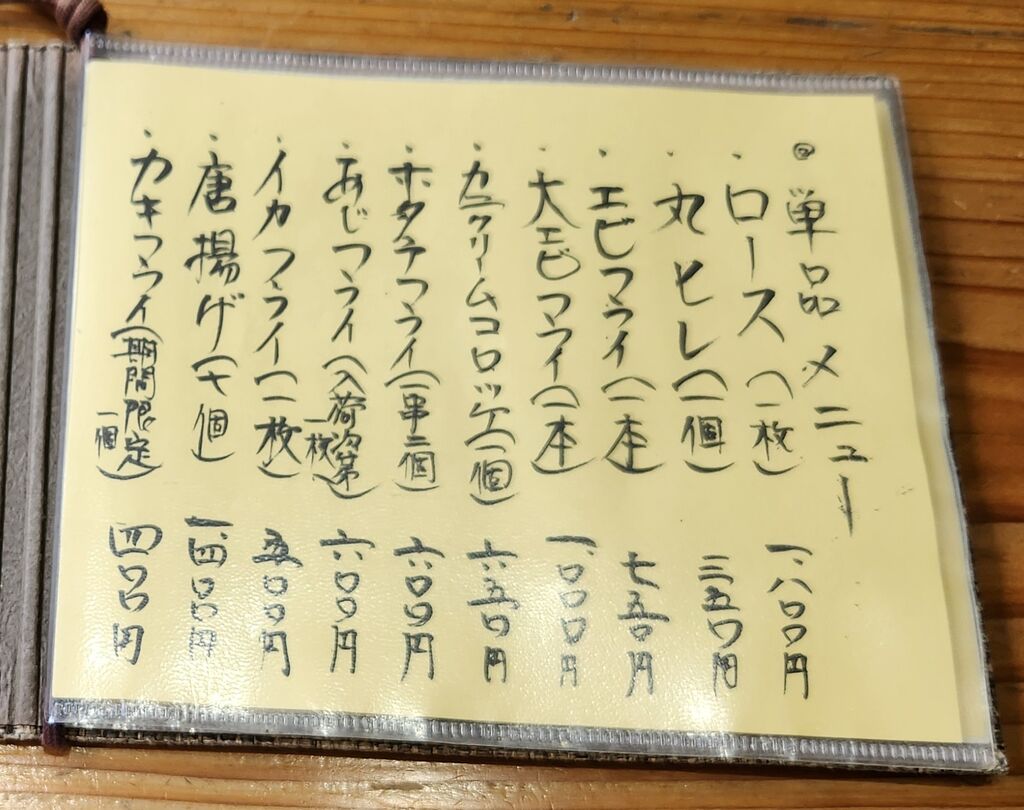 ◎単品メニュー
・ロース（一枚）一、八〇〇円
・丸ヒレ（一個）三五〇円
・エビフライ（一本）七五〇円
・大エビフライ（一本）一、〇〇〇円
・カニクリームコロッケ（一個）六五〇円
・ホタテフライ（一串二個）六〇〇円
・あじフライ（入荷次第一枚）六〇〇円
・イカフライ（一枚）五〇〇円
・唐揚げ（七個）一、四〇〇円
・カキフライ（期間限定一個）四〇〇円